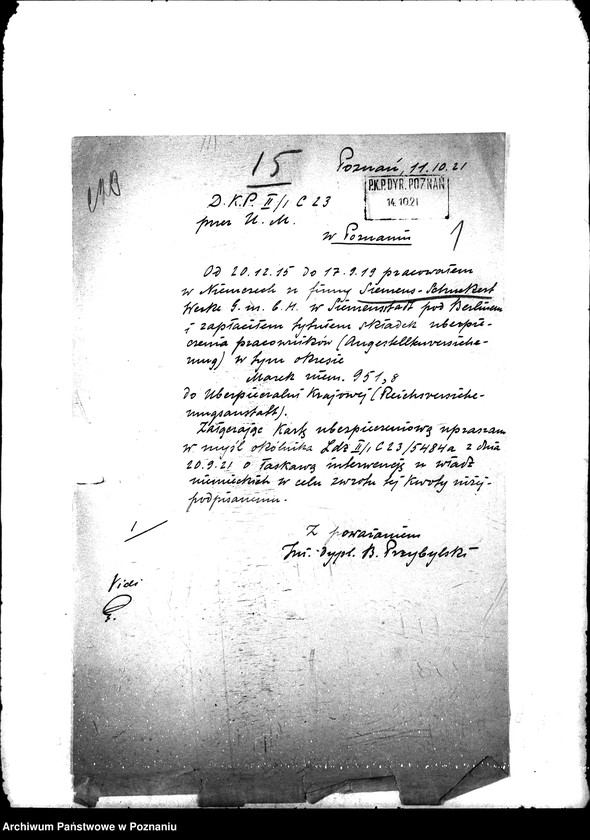 15
Poznań, 11.10.21
P.K.P. DYR. POZNAŃ
14.10.21
D.K.P. II/1 C 23
przez U. M.
w Poznaniu
1
Od 20.12.15 do 17.9.19 pracowałem
w Niemczech u firmy Siemens-Schuckert
Werke G. m. b. H. w Siemensstadt pod Berlinem
i zapłaciłem tytułem składek ubezpie-
czenia pracowników (Angestelltenversiche-
rung) w tym okresie
Marek niem. 951,8
do Ubezpieczalni Krajowej (Reichsversiche-
rungsanstalt).
Załączając Kartę ubezpieczeniową upraszam
w myśl okólnika Ldz II/1 C 23/5484a z dnia
20.9.21 o łaskawą interwencję u władz
niemieckich w celu zwrotu tej kwoty niżej-
podpisanemu.
1
Z poważaniem
Inż. dypl. B. Przybylski
Vidi
Archiwum Państwowe w Poznaniu